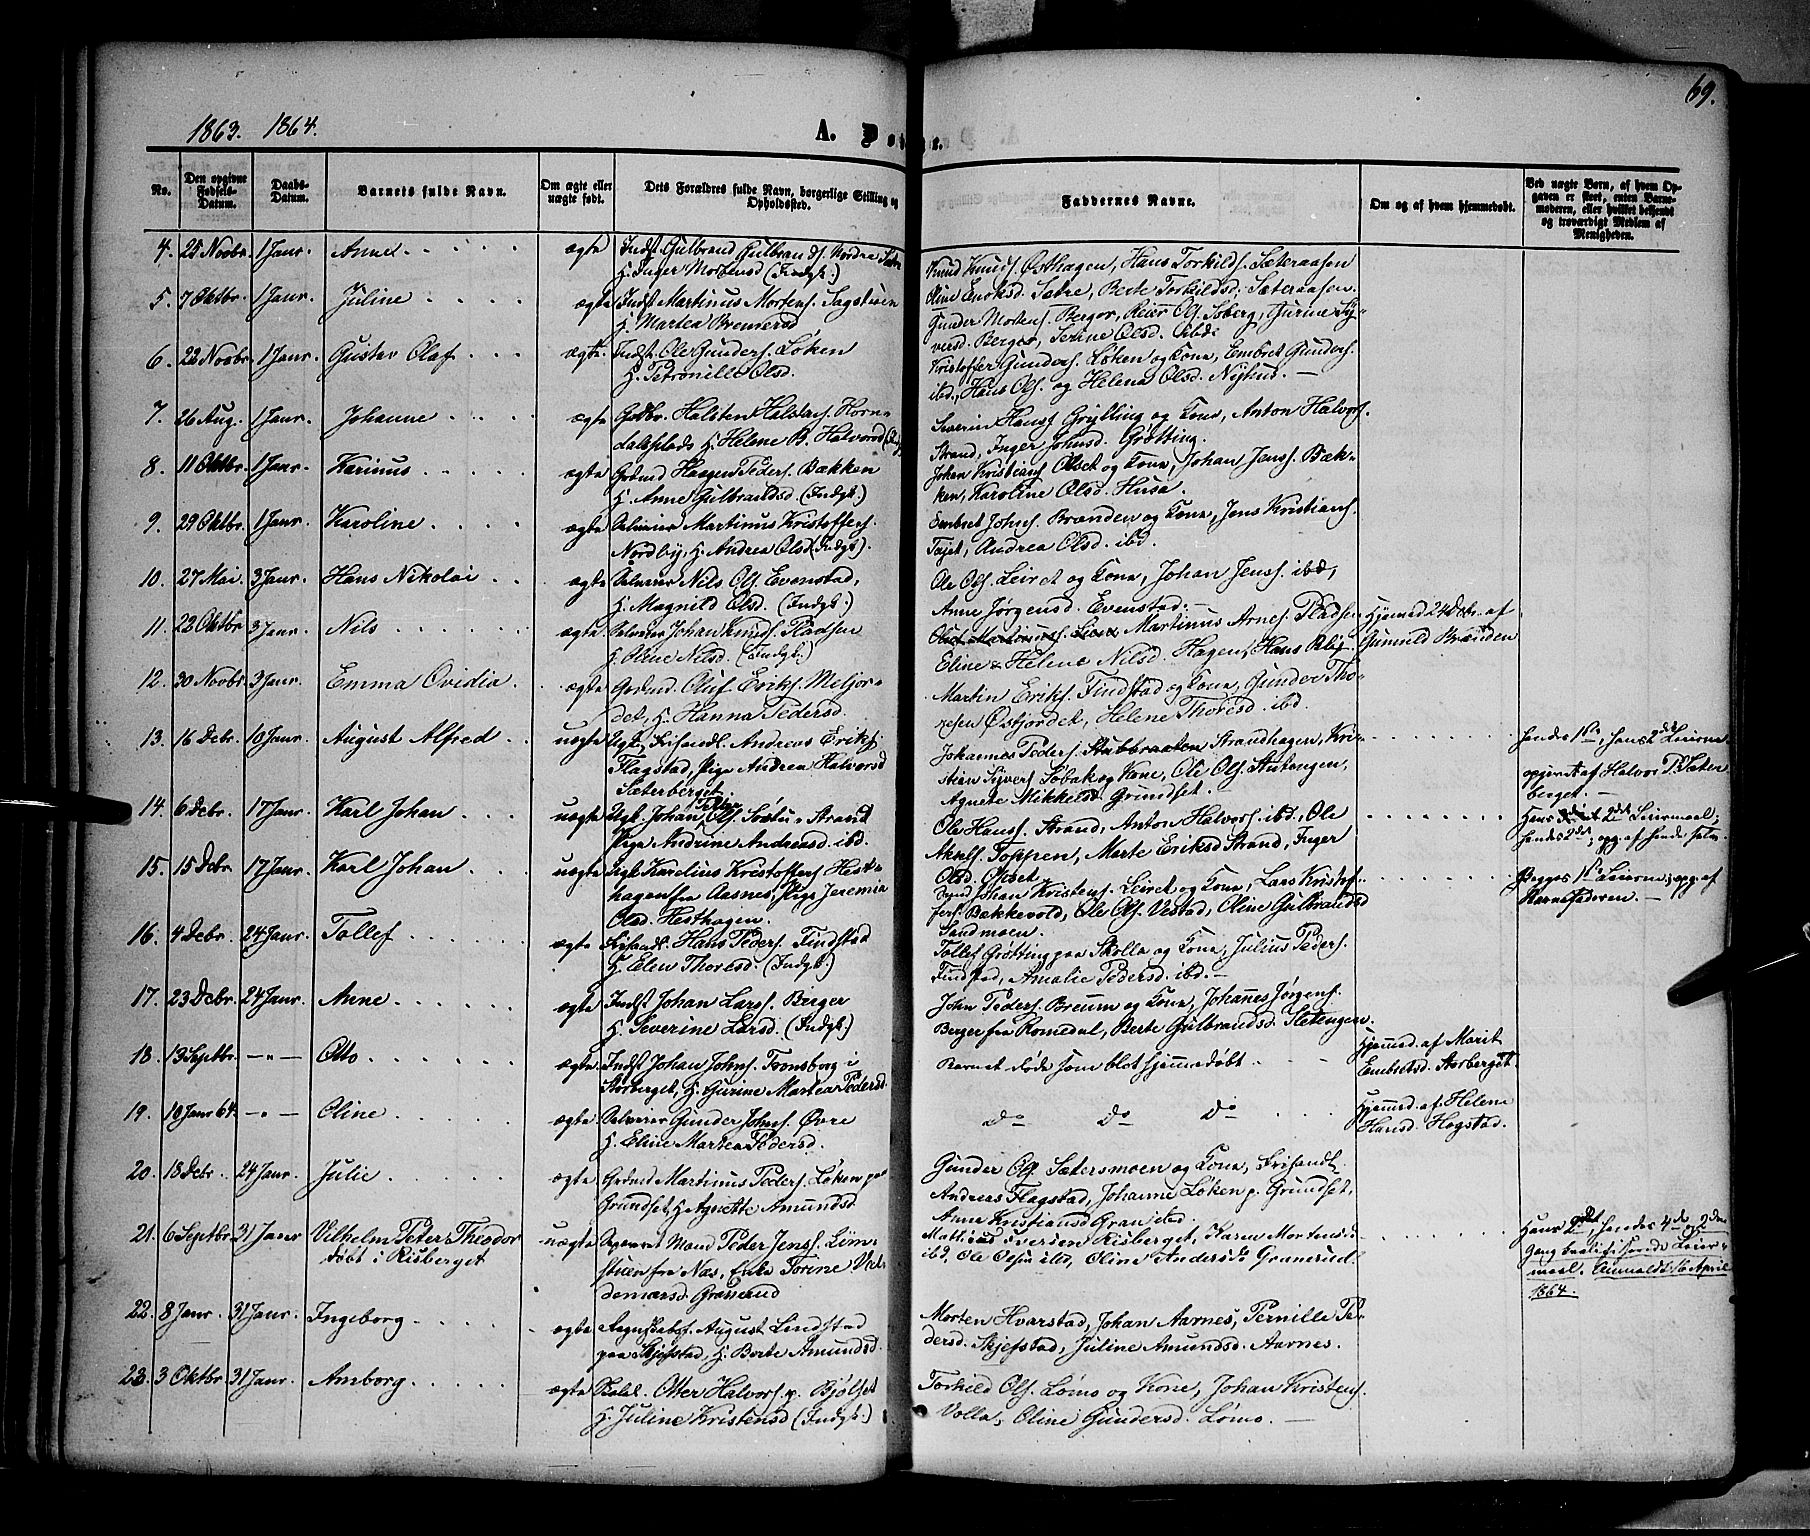 69.
1863. 1864.
A. D
No.
Den opgivne Fødsels-Datum.
Daabs-Datum.
Barnets fulde Navn.
Om ægte eller uægte født.
Dets Forældres fulde Navn, borgerlige Stilling og Opholdssted.
Faddernes Navne.
Om og af hvem hjemmedøbt.
Ved uægte Børn, af hvem Opgaven er skeet, enten Barnemoderen, eller hvilket bestemt og troværdigt Medlem af Menigheden.
4. 25 Novbr. 1 Janr. Anne ægte Indst. Gulbrand Gulbrands. Nordre Sætre
H. Inger Mortensd (Indgk.)
Knud Knuds. Østhagen, Hans Torkilds. Sæteraasen
Oline Enoksd. Sætre, Berte Torkildsd. Sæteraasen.
5. 7 Oktbr. 1 Janr. Juline ægte Indst Martinus Mortens. Sagstuen
H. Martea Brennersd
Gunder Mortens. Berger, Reier Ols. Søberg, Gurine Sy-
versd. Berger, Serine Olsd. ibde
6. 22 Novbr. 1 Janr. Gustav Olaf ægte Indst. Ole Gunders. Løken
H. Petronille Olsd.
Kristoffer Gunders. Løken og Kone, Embret Gunders.
ibd., Hans Ols. og Helena Olsd. Nyhus. —
7. 26 Aug. 1 Janr. Johanne ægte Gbr. Halsten Halstens. Horn-
dalsplads H. Helene B. Halvorsd
Severin Hanss Grytting og Kone, Anton Halvors.
Strand, Inger Johnsd. Grøtting.
8. 11 Oktbr. 1 Janr. Karinus ægte Grbmd Haagen Peders. Bækken
H. Anne Gulbrandsd. (Indgk.)
Johan Kristians. Olset og Kone, Johan Jenss. Bæk-
ken, Karoline Olsd. Husa.
9. 29 Oktbr. 1 Janr. Karoline ægte Selveier Martinus Kristoffers.
Nordby, H. Andrea Olsd (Indgk.)
Embret Johns. Brænden og Kone, Jens Kristians.
Tøjet, Andrea Olsd. ibd.
10. 27 Mai 3 Janr. Hans Nikolai ægte Selveier Nils Ols. Evenstad,
H. Magnild Olsd. (Indgk.)
Ole Ols. Leiret og Kone, Johan Jenss. ibd,
Anne Jørgensd. Evenstad.
11. 22 Oktbr 3 Janr. Nils ægte Selveier Johan Knuds. Pladsen
H. Oline Nilsd. (Indgk.)
Martinus Arnes. Pladsen
Eline & Helene Nilsd. Hagen, Hans
Hjemmed 24 Debr. af
Gunnild Brænden
12. 30 Novbr 3 Janr. Emma Ovidia ægte Grbmd. Oluf Eriks. Meljor-
det, H. Hanna Pedersd.
Martin Eriks. Findstad og Kone, Gunder Tho-
resen Østjordet, Helene Thoresd ibd.
13. 16 Debr. 10 Janr. August Alfred uægte Ugk. Frihandl. Andreas Eriks.
Flagstad, Pige Andrea Halvorsd
Sæterberget.
Johannes Peders. Stubbraaten Strandhagen, Kri-
stian Syvers Søbak og Kone, Ole Ols. Stutengen,
Agnete Mikkelsd Grundset.
hendes 1ste, hans 2det Leierm.
opgivet af Halvor P. Sæter-
berget. —
14. 6 Debr. 17 Janr. Karl Johan uægte Ugk. Johan Peter Ols. Sætu - Strand
Pige Andrine Andreasd. ibd.
Ole Hanss. Strand, Anton Halvors. ibd., Ole
Akels. Toppen, Marte Eriksd Strand, Inger
Olsd. Olset
Hans 2det Leiermaal;
hendes 2det, opg. af hende selv.
15. 15 Debr 17 Janr. Karl Johan uægte Ugk Karelius Kristoffers Hest-
hagen fra Aasnes, Pige Jeremia
Olsd. Hesthagen.
Johan Kristens. Leiret og Kone, Lars Kristof-
fers. Bakkevold, Ole Ols. Vestad, Oline Gulbrandsd
Sandmoen.
Begges 1ste Leierm., opg. af
Barnefaderen. —
16. 4 Debr. 24 Janr. Tollef ægte Frihandl. Hans Peders. Findstad
H. Elen Thoresd. (Indgk.)
Tollef Grøtting paa Skolla og Kone, Julius Peders.
Findstad, Amalie Pedersd. ibd. —
17. 23 Debr. 24 Janr. Anne ægte Indst Johan Larss. Berger
H. Severine Larsd. (Indgk.)
John Peders. Breum og Kone, Johannes Jørgens.
Berger fra Romedal, Berte Gulbrandsd. Sletengen.
18. 13 Septbr. —"— Otto ægte Indst Johan Johns. Tronsborg i
Storberget, H. Gurine Martea Pedersd.
Barnet døde som blot hjemmedøbt.
Hjemmd. af Marit
Embretsd. Storberget.
19. 10 Janr 64. —"— Oline ægte Selveier Gunder Johns. Øvre
H. Eline Martea Pedersd.
do do do
Hjemmed. af Helene
Hansd. Hogstad.
20. 18 Debr. 24 Janr. Julie ægte Grbmd Martinus Peders. Løken paa
Grundset, H Agnette Amundsd
Gunder Ols. Sætersmoen og Kone, Frihandl.
Andreas Flagstad, Johanne Løken p. Grundset,
Anne Kristiansd Gran ibd
21. 6 Septbr 31 Janr Vilhelm Peter Theodor
døbt i Risberget
uægte Separert Mand Peder Jenss. Løm-
stuen fra Næs, Enke Torine Val-
demarsd. Grasmd
Mathias Iversen Risberget, Karen Mortensd.
ibd, Ole Olsen ibd, Oline Andersd. Gransund.
Hans 2det hendes 4de, 2den
Gang besv.
maal. Anmeldt 16 April
1864.
22. 8 Janr. 31 Janr. Ingeborg ægte Regnsk.bef. August Lindstad
paa Skjefstad, H. Berte Amundsd.
Morten Hvarstad, Johan Aarnes, Pernille Pe-
dersd. Skjefstad, Juline Amundsd. Aarnes.
23. 3 Oktbr. 31 Janr. Amborg ægte Skolel. Otter Halvors. p. Bjølset
H. Juline Kristensd (Indgk.)
Torkild Ols. Lømo og Kone, Johan Kristens.
Volla, Oline Gundersd. Lømo. —